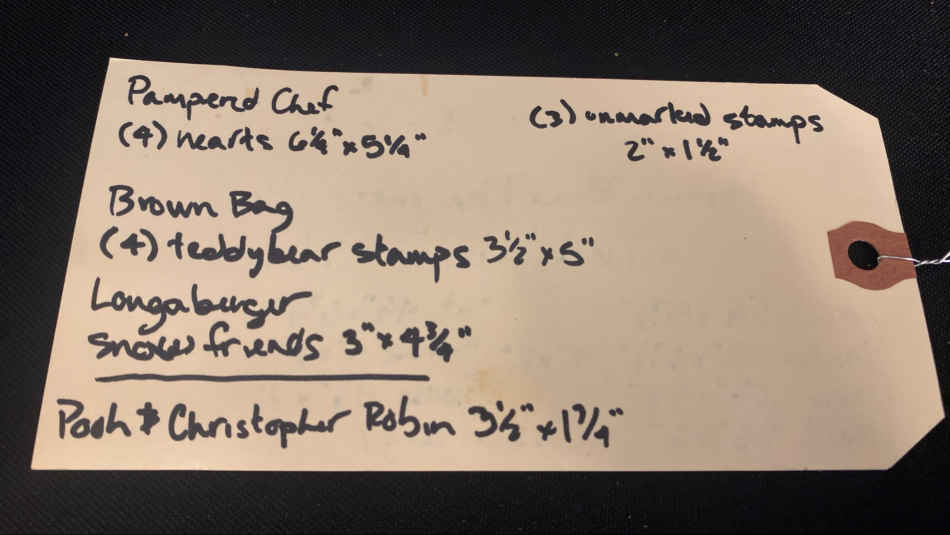 Pampered Chef
(4) hearts 6 1/4" x 5 1/4"
(3) unmarked stamps
2" x 1 1/2"
Brown Bag
(4) teddybear stamps 3 1/2" x 5"
Longaberger
snow friends 3" x 4 3/4"
Pooh & Christopher Robin 3 1/2" x 1 3/4"